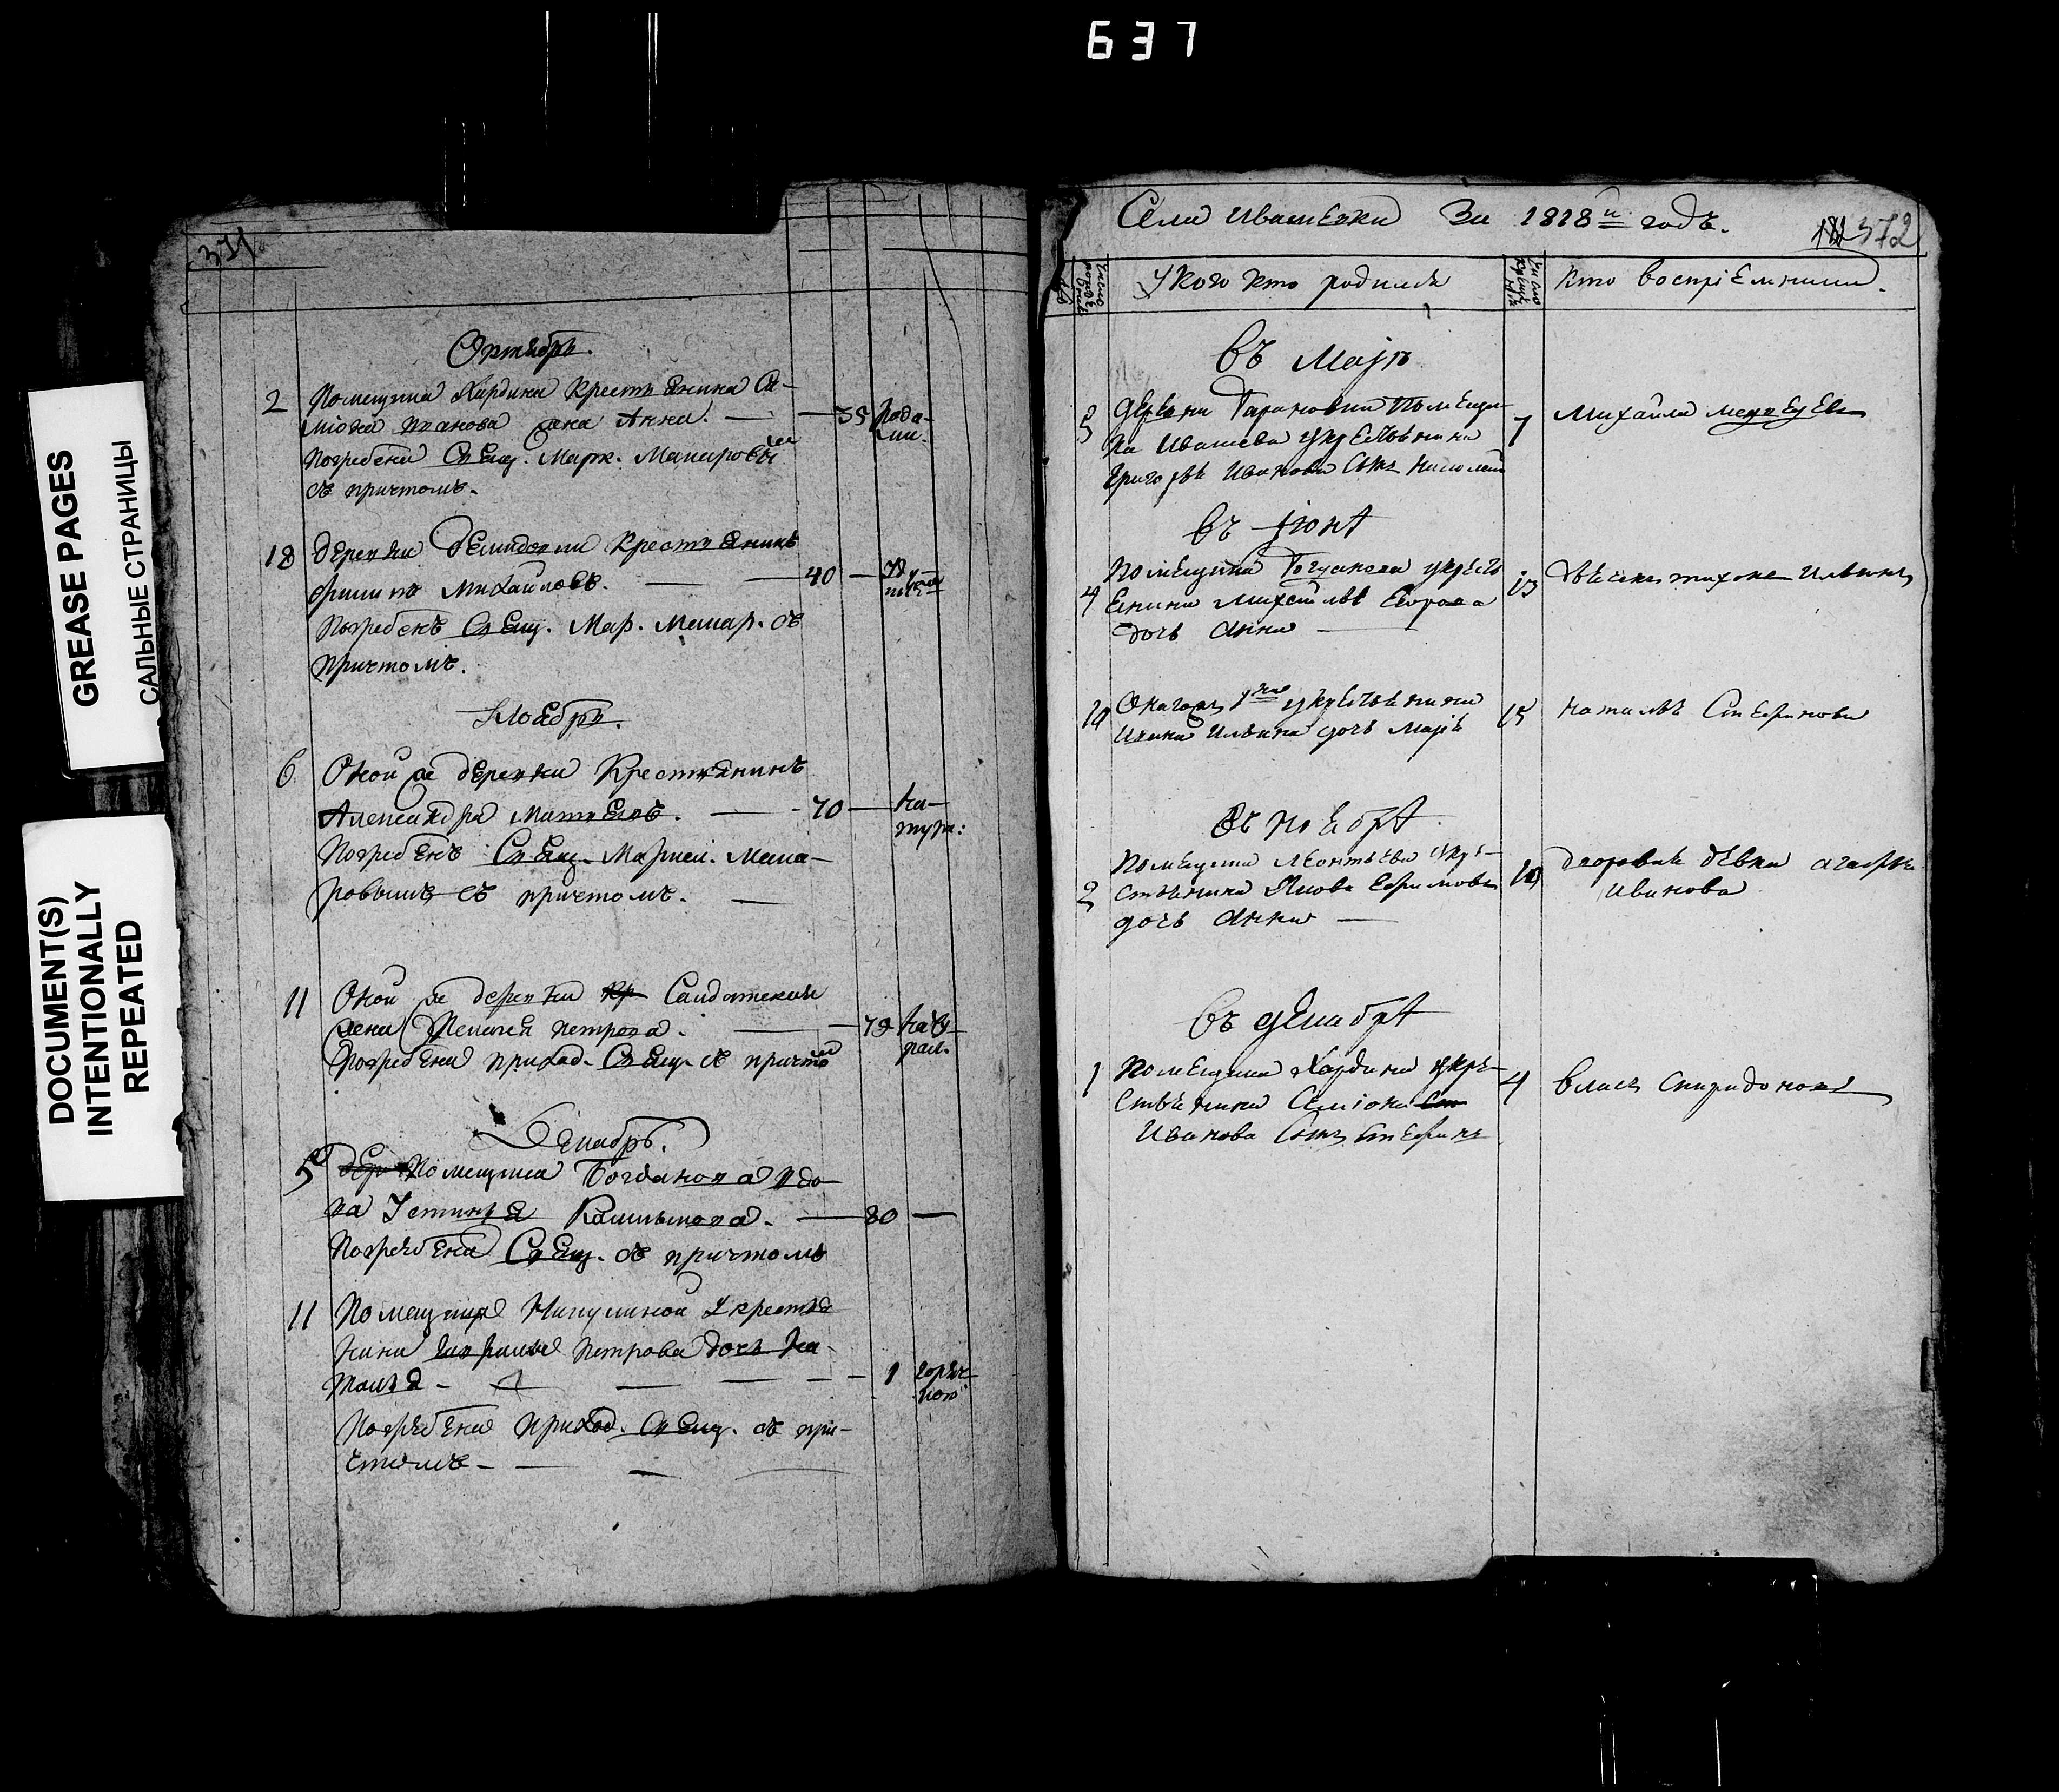 637
GREASE PAGES
САЛЬНЫЕ СТРАНИЦЫ
DOCUMENT(S)
INTENTIONALLY
REPEATED
371
Октябрь.
2 Помещика Хардина Крестьянина Се-
міона Иванова жена Анна. — 35 рода-
ми.
Погребена Свящ. Марк. Макаровым
съ причтомъ.
18 деревни демидовки Крестьянинъ
филипъ Михайловъ. — 40 —
Погребенъ Свящ. Мар. Макар. съ
причтомъ.
Ноябрь.
6 Оной же деревни Крестьянинъ
Александра Матвеевъ. — 70 — На-
тура:
Погребенъ Свящ. Маркел. Мака-
ровымъ съ причтомъ. —
11 Оной же деревни Салдатская
жена Пелагея петрова. — 79 Нату-
рал.
Погребена приход. Свящ. съ причтом
Декабрь.
5 Помещика Богданова вдо-
ва Устинья — 80 —
Погребена Свящ. съ причтомъ
11 Помещика Микулиной Укрестья
нина петрова дочь На-
талья — 1 горяч-
кою
Погребена приход. Свящ. съ при-
чтомъ —
Села Ивашевки За 1818й годъ.
372
Укого кто родился
Кто воспріемники.
Въ Маіѣ
5 Деревни Тарановки Помещи-
ка Ивашева укрестьянина
Григорья Иванова сынъ Николай 7 Михайла Медведевъ
Въ Іюнѣ
4 Помещика Богданова укресть
енина Михайлы Егорова
дочь Анна — 13 Тихона Ильина
Онагожъ укрестьянина
Ильина дочь Маріе 15 Наталья Стефанова
Въ Ноябрѣ
2 Помещика Леонтьева укре-
стьянина Якова Ефимова
дочь Анна — 10 дворовая девка агафья
Иванова
Въ декабрѣ
1 Помещика Хардина укре-
стьянина Семіона
Иванова Сынъ Стефанъ 4 Власъ Спиридоновъ